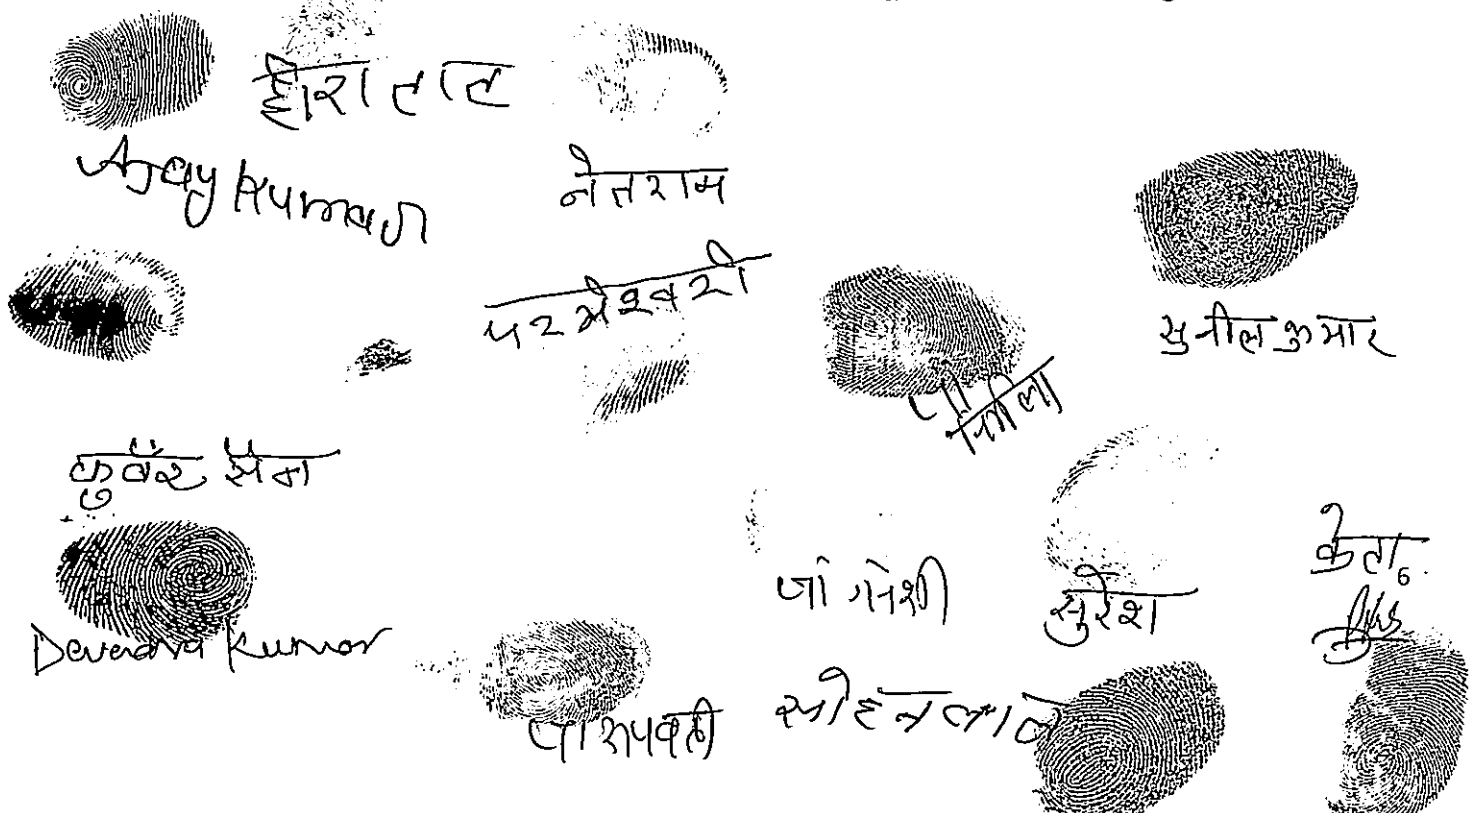 हीरा लाल
Ajay Kumar
नेतराम
परमेश्वरी
सुनील कुमार
निर्मला
कुवॅर सैन
सुरेश
क्रेता
Devendra Kumar
रूपवती
सोहनलाल